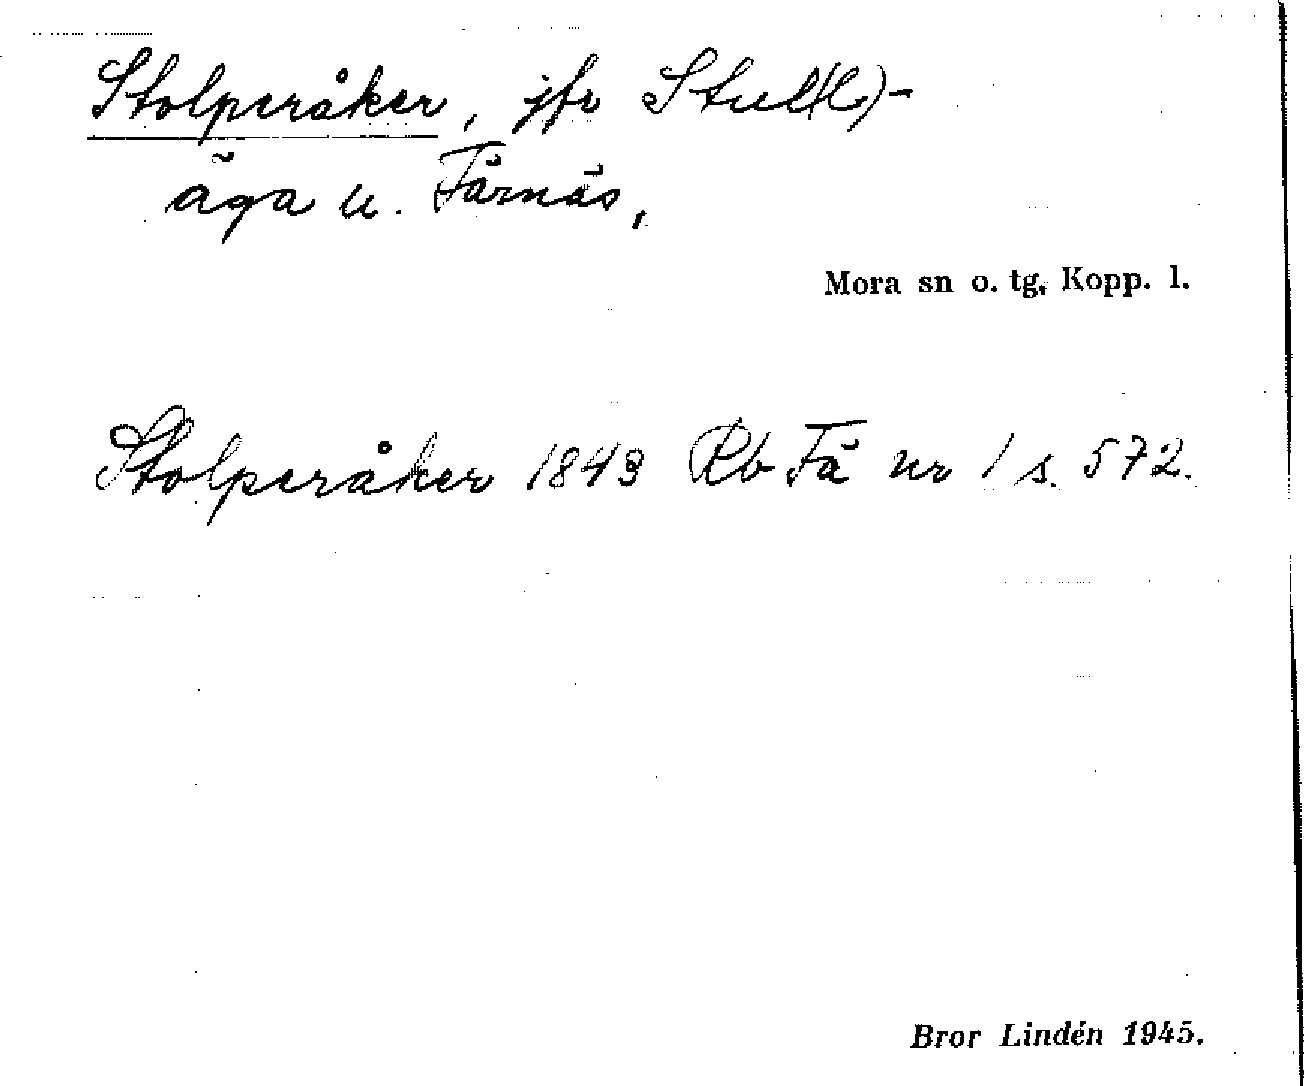 Stolperåker, jfr Stul(l)-
äga u. Färnäs,
Mora sn o. tg, Kopp. l.
Stolperåker 1843 Rb Fä nr 1 s. 572.
Bror Lindén 1945.